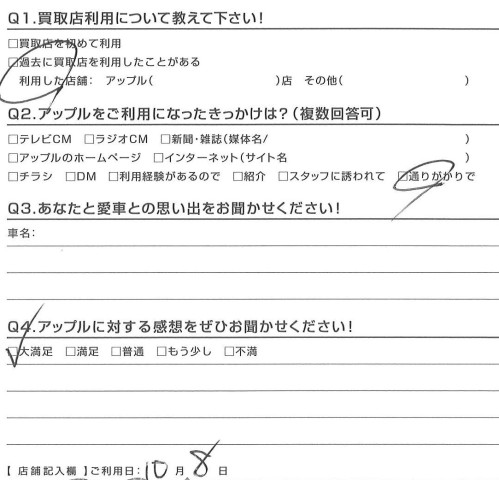 Q1.買取店利用について教えて下さい！
□買取店を初めて利用
□過去に買取店を利用したことがある
利用した店舗： アップル（ ）店 その他（ ）
Q2.アップルをご利用になったきっかけは？（複数回答可）
□テレビCM □ラジオCM □新聞・雑誌（媒体名/ ）
□アップルのホームページ □インターネット（サイト名 ）
□チラシ □DM □利用経験があるので □紹介 □スタッフに誘われて □通りがかりで
Q3.あなたと愛車との思い出をお聞かせください！
車名：
Q4.アップルに対する感想をぜひお聞かせください！
□大満足 □満足 □普通 □もう少し □不満
【 店舗記入欄 】ご利用日：10月8日